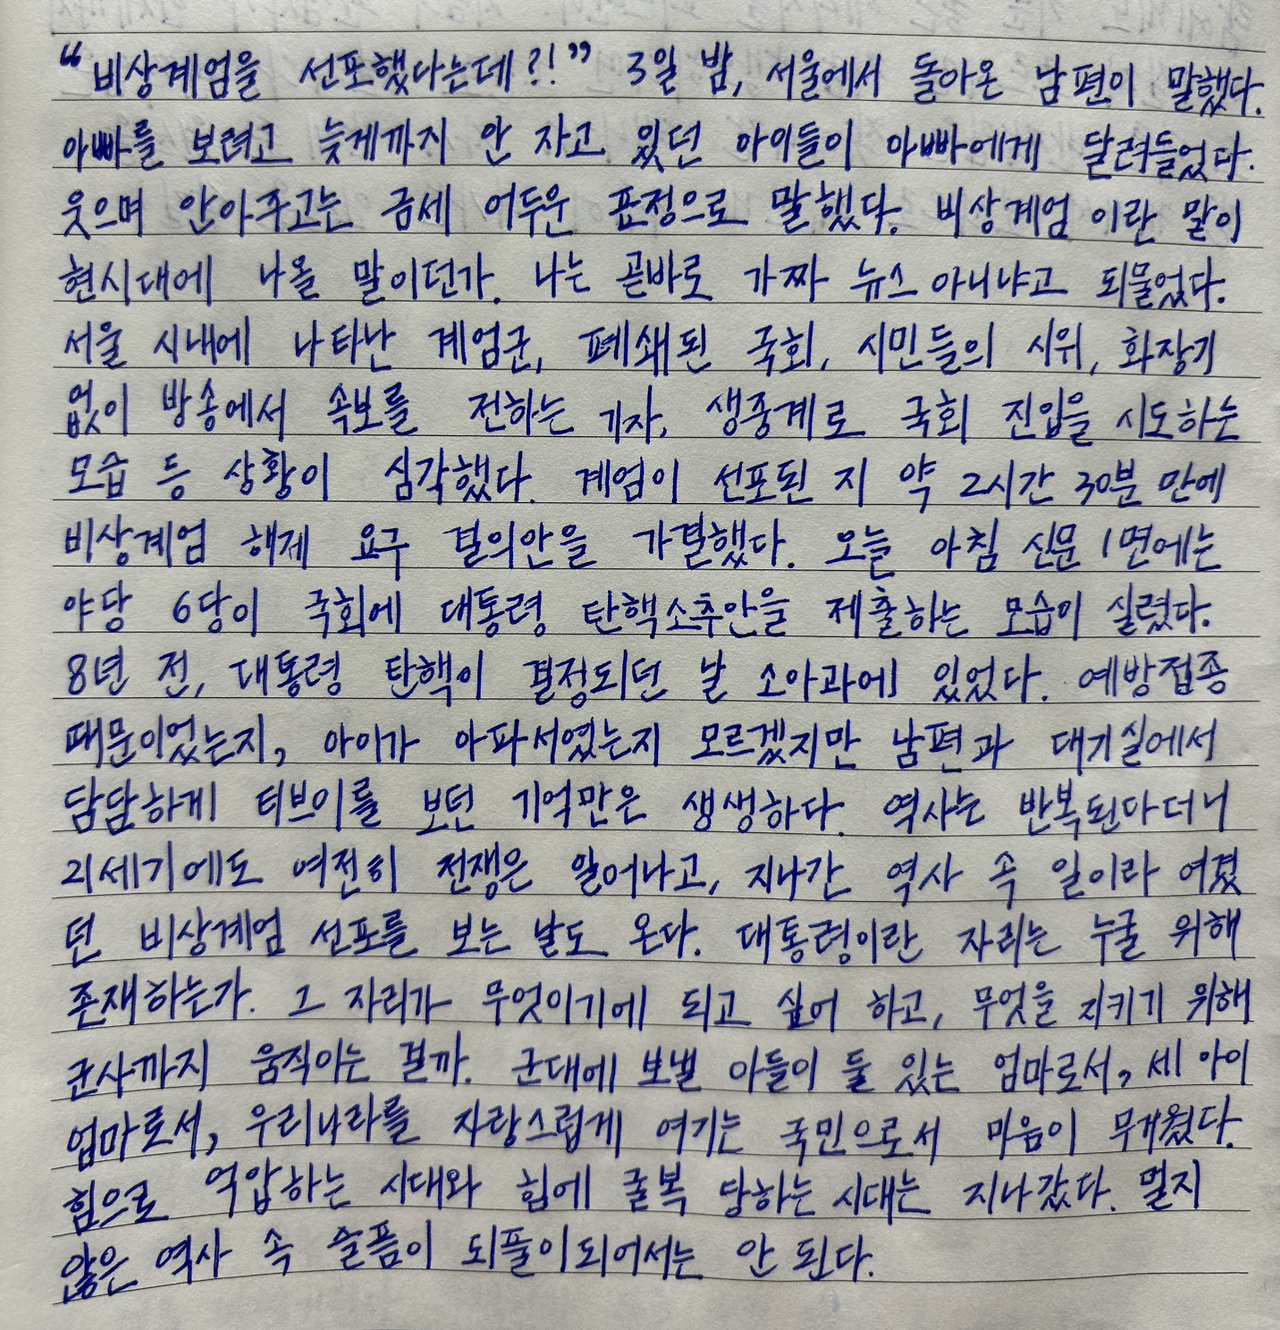 “비상계엄을 선포했다는데?!” 3일 밤, 서울에서 돌아온 남편이 말했다.
아빠를 보려고 늦게까지 안 자고 있던 아이들이 아빠에게 달려들었다.
웃으며 안아주고는 금세 어두운 표정으로 말했다. 비상계엄 이란 말이
현시대에 나올 말이던가. 나는 곧바로 가짜 뉴스 아니냐고 되물었다.
서울 시내에 나타난 계엄군, 폐쇄된 국회, 시민들의 시위, 화장기
없이 방송에서 속보를 전하는 기자, 생중계로 국회 진입을 시도하는
모습 등 상황이 심각했다. 계엄이 선포된 지 약 2시간 30분 만에
비상계엄 해제 요구 결의안을 가결했다. 오늘 아침 신문 1면에는
야당 6당이 국회에 대통령 탄핵소추안을 제출하는 모습이 실렸다.
8년 전, 대통령 탄핵이 결정되던 날 소아과에 있었다. 예방접종
때문이었는지, 아이가 아파서였는지 모르겠지만 남편과 대기실에서
담담하게 티브이를 보던 기억만은 생생하다. 역사는 반복된다더니
21세기에도 여전히 전쟁은 일어나고, 지나간 역사 속 일이라 여겼
던 비상계엄 선포를 보는 날도 온다. 대통령이란 자리는 누굴 위해
존재하는가. 그 자리가 무엇이기에 되고 싶어 하고, 무엇을 지키기 위해
군사까지 움직이는 걸까. 군대에 보낼 아들이 둘 있는 엄마로서, 세 아이
엄마로서, 우리나라를 자랑스럽게 여기는 국민으로서 마음이 무거웠다.
힘으로 억압하는 시대와 힘에 굴복 당하는 시대는 지나갔다. 멀지
않은 역사 속 슬픔이 되풀이되어서는 안 된다.